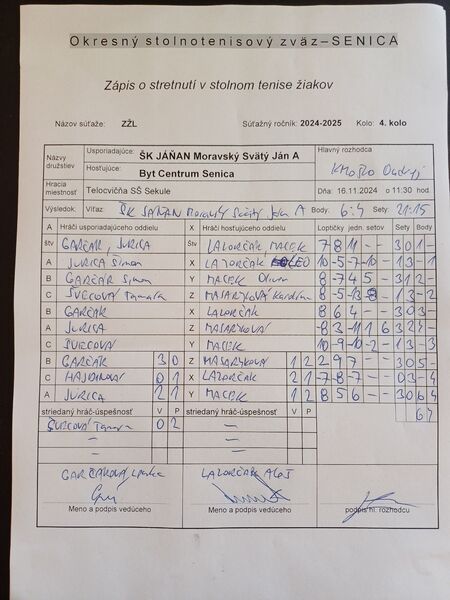 Okresný stolnotenisový zväz–SENICA
Zápis o stretnutí v stolnom tenise žiakov
Názov súťaže: ZŽL Súťažný ročník: 2024-2025 Kolo: 4. kolo
Názvy družstiev Usporiadajúce: ŠK JÁŇAN Moravský Svätý Ján A Hlavný rozhodca
Hosťujúce: Byt Centrum Senica
Hracia miestnosť Telocvičňa SŠ Sekule Dňa: 16.11.2024 o 11:30 hod.
Výsledok: Víťaz: ŠK JÁŇAN Moravský Svätý Ján A Body: 6:4 Sety: 21:15
A Hráči usporiadajúceho oddielu X Hráči hosťujúceho oddielu Loptičky jedn. setov Sety Body
štv GARČÁR, JURICA Štv LALORČÁK MACEK 7 8 11 - - 3 0 1 -
A JURICA Šimon X LALORČÁK LEO 10 -5 -7 -10 - 1 3 - 1
B GARČÁR Šimon Y MACEK Oliver 8 -7 4 5 - 3 1 2 -
C ŠVECOVÁ Tamara Z MASARYKOVÁ Karolína 8 -5 -13 -8 - 1 3 - 2
B GARČÁR X LALORČÁK 8 6 4 - - 3 0 3 -
A JURICA Z MASARYKOVÁ -8 3 -11 1 6 3 2 4 -
C ŠVECOVÁ Y MACEK 10 -9 -10 -2 - 1 3 - 3
B GARČÁR 3 0 Z MASARYKOVÁ 1 2 2 9 7 - - 3 0 5 -
C HAJDINOVÁ 0 1 X LALORČÁK 2 1 -7 -8 -7 - - 0 3 - 4
A JURICA 2 1 Y MACEK 1 2 8 5 6 - - 3 0 6 4
striedaný hráč-úspešnosť V P striedaný hráč-úspešnosť V P 6 4
ŠVECOVÁ Tamara 0 2 –
– –
– –
GARČÁROVÁ LALORČÁK
Meno a podpis vedúceho Meno a podpis vedúceho podpis hl. rozhodcu